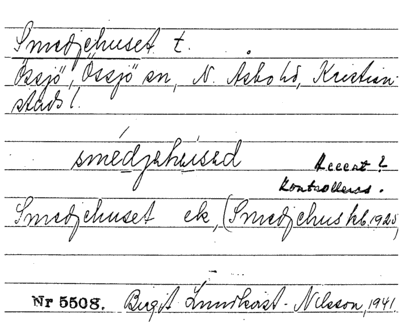 Smedjehuset t.
Össjö, Össjö sn, N. Åsbo hd, Kristian-
stads l.
smédjehu̱sed Accent?
Kontrolleras.
Smedjehuset ek, (Smedjehus hb. 1925,
Nr 5508. Birgit Lundkvist-Nilsson, 1941.